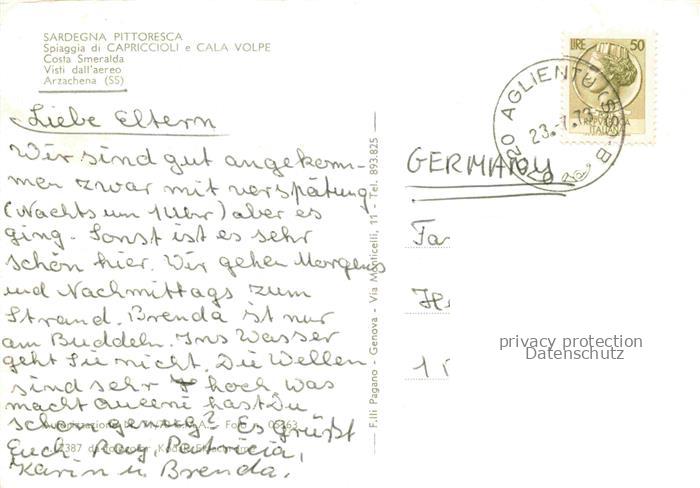 SARDEGNA PITTORESCA
Spiaggia di CAPRICCIOLI e CALA VOLPE
Costa Smeralda
Visti dall'aereo
Arzachena (SS)
Liebe Eltern
Wir sind gut angekom-
men zwar mit verspätung
(Nachts um 1 Uhr) aber es
ging. Sonst ist es sehr
schön hier. Wir gehen Morgens
und Nachmittags zum
Strand. Brenda ist nur
am Buddeln. Ins Wasser
geht Sie nicht. Die Wellen
sind sehr hoch. Was
macht hast Du
schon genug? Es grüßt
Euch. Ray, Patricia,
Karin u. Brenda.
F.lli Pagano - Genova - Via Monticelli, 11 - Tel. 893.825
LIRE 50
REPUBBLICA
ITALIANA
AGLIENTU (SS) B
23.-7.73
GERMANY
Fa
1
privacy protection
Datenschutz